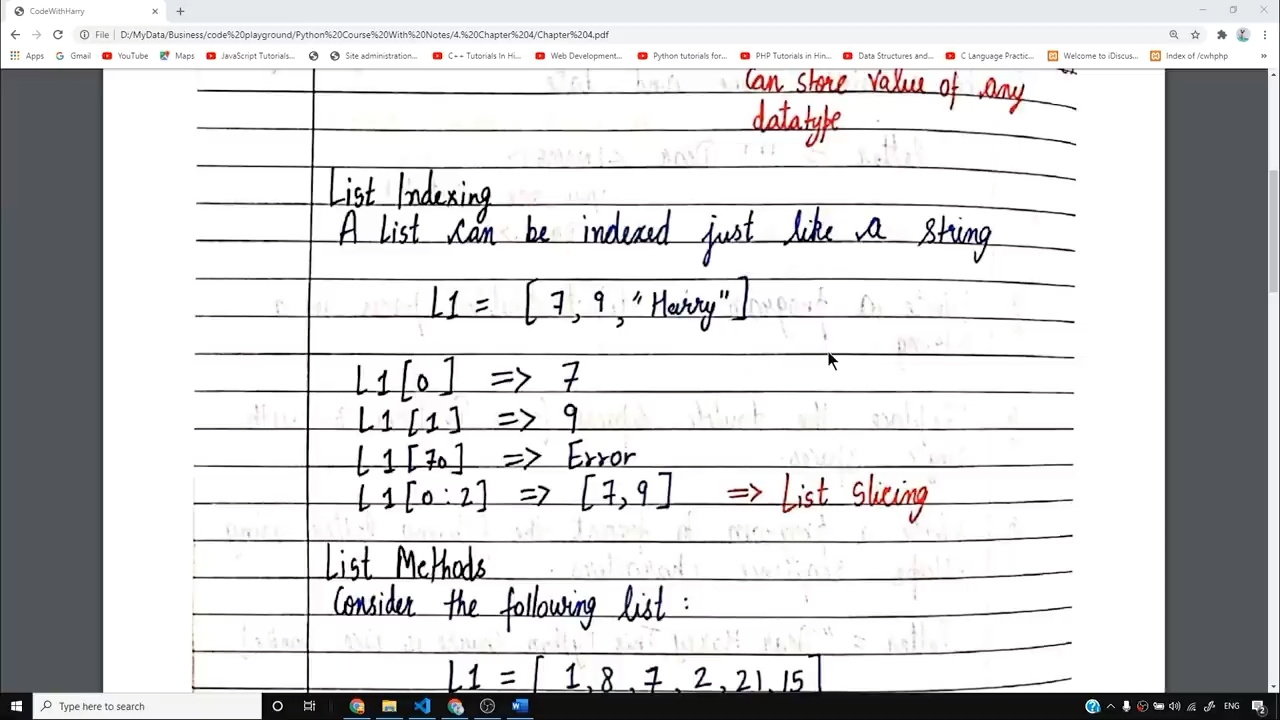 CodeWithHarry
File
D:/MyData/Business/code%20playground/Python%20Course%20With%20Notes/4.%20Chapter%204/Chapter%204.pdf
Apps Gmail YouTube Maps JavaScript Tutorials... Site administration... C++ Tutorials In Hi... Web Development... Python tutorials for... PHP Tutorials in Hin... Data Structures and... C Language Practic... Welcome to iDiscus... Index of /cwhphp
Can store value of any
datatype
List Indexing
A list can be indexed just like a string
L1 = [7, 9, "Harry"]
L1[0] => 7
L1[1] => 9
L1[70] => Error
L1[0:2] => [7,9] => List Slicing
List Methods
Consider the following list :
L1 = [ 1, 8, 7, 2, 21, 15]
Type here to search
ENG